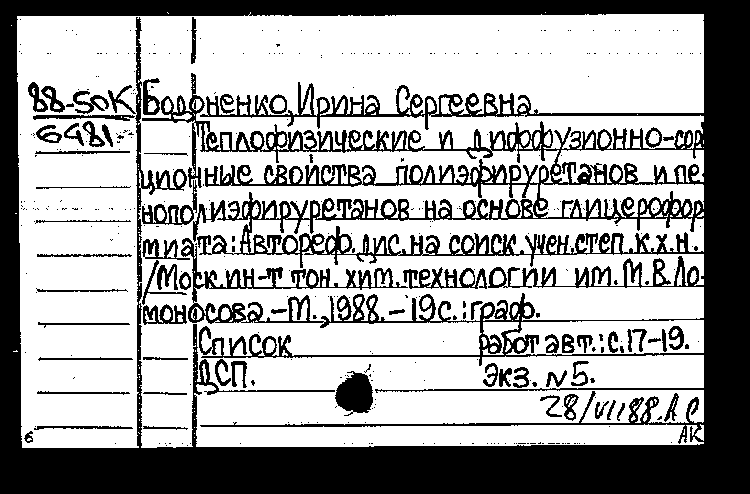 88-50К Бодоненко, Ирина Сергеевна.
6481 Теплофизические и диффузионно-сор
ционные свойства полиэфируретанов и пе-
нополиэфируретанов на основе глицерофор
миата: Автореф. дис. на соиск. учен. степ. к.х.н.
/Моск. ин-т тон. хим. технологии им. М.В. Ло-
моносова. - М., 1988. - 19с. : граф.
Список работ авт.: с. 17-19.
ДСП. Экз. N 5.
28/VII 88. А С
6 АК